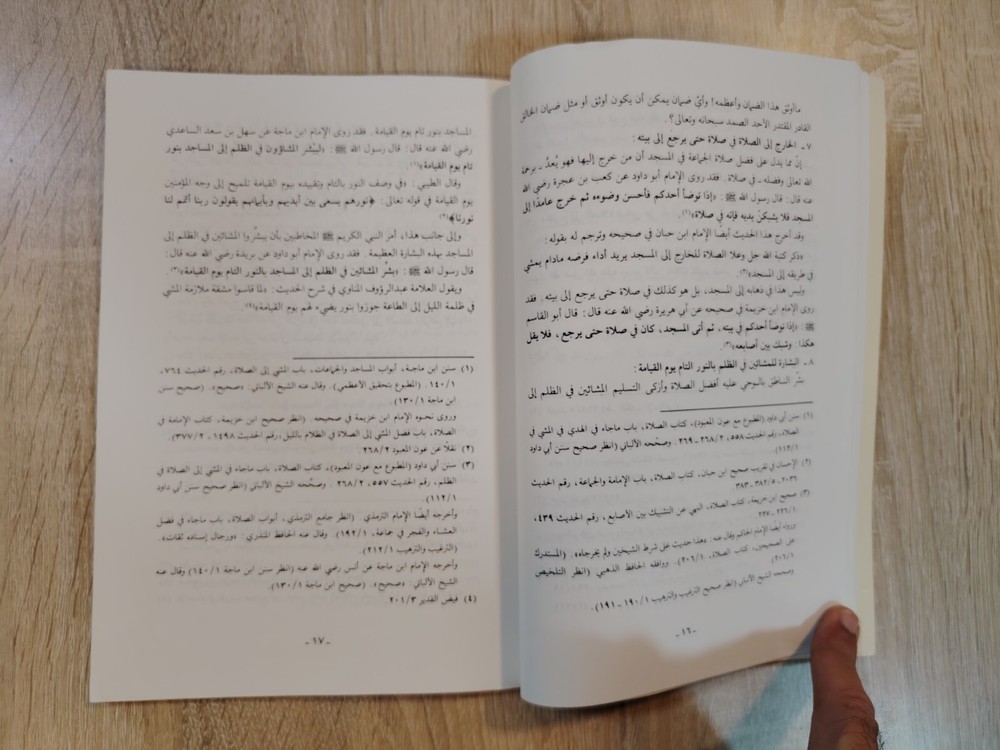 ماأوثق هذا الضمان وأعظمه! وأيّ ضمان يمكن أن يكون أوثق أو مثل ضمان الخالق
القادر المقتدر الأحد الصمد سبحانه وتعالى؟.
٧ ـ الخارج إلى الصلاة في صلاة حتى يرجع إلى بيته :
إنّ مما يدل على فضل صلاة الجماعة في المسجد أن من خرج إليها فهو يُعدُّ ـ برحمة
الله تعالى وفضله ـ في صلاة. فقد روى الإمام أبو داود عن كعب بن عجرة رضي الله
عنه قال: قال رسول الله ﷺ : «إذا توضأ أحدكم فأحسن وضوءه ثم خرج عامدًا إلى
المسجد فلا يشبكنّ يديه فإنه في صلاة»(١).
وقد أخرج هذا الحديث أيضًا الإمام ابن حبان في صحيحه وترجم له بقوله:
«ذكر كتبة الله جل وعلا الصلاة للخارج إلى المسجد يريد أداء فرضه مادام يمشي
في طريقه إلى المسجد»(٢).
وليس هذا في ذهابه إلى المسجد، بل هو كذلك في صلاة حتى يرجع إلى بيته. فقد
روى الإمام ابن خزيمة في صحيحه عن أبي هريرة رضي الله عنه قال: قال أبو القاسم
ﷺ : «إذا توضأ أحدكم في بيته، ثم أتى المسجد، كان في صلاة حتى يرجع، فلا يقل
هكذا: وشبك بين أصابعه»(٣).
٨ ـ البشارة للمشائين في الظلم بالنور التام يوم القيامة :
بشّر الناطق بالوحي عليه أفضل الصلاة وأزكى التسليم المشائين في الظلم إلى
(١) سنن أبي داود (المطبوع مع عون المعبود)، كتاب الصلاة، باب ماجاء في الهدي في المشي في
الصلاة، رقم الحديث ٥٥٨، ٢٦٨/٢ ـ ٢٦٩. وصحّحه الألباني (انظر صحيح سنن أبي داود
١١٢/١).
(٢) الإحسان في تقريب صحيح ابن حبان، كتاب الصلاة، باب الإمامة والجماعة، رقم الحديث
٢٠٣٦، ٣٨٢/٥ ـ ٣٨٣.
(٣) صحيح ابن خزيمة، كتاب الصلاة، النهي عن التشبيك بين الأصابع، رقم الحديث ٤٣٩،
٢٢٦/١ ـ ٢٢٧.
ورواه أيضًا الإمام الحاكم وقال عنه: «هذا حديث على شرط الشيخين ولم يخرجاه». (المستدرك
على الصحيحين، كتاب الصلاة، ٢٠٦/١). ووافقه الحافظ الذهبي (انظر التلخيص
٢٠٦/١).
وصححه الشيخ الألباني (انظر صحيح الترغيب والترهيب ١٩٠/١ ـ ١٩١).
ـ ١٦ ـ
المساجد بنور تام يوم القيامة. فقد روى الإمام ابن ماجة عن سهل بن سعد الساعدي
رضي الله عنه قال: قال رسول الله ﷺ : «ليبْشر المشاؤون في الظلم إلى المساجد بنور
تام يوم القيامة»(١).
وقال الطيبي : «في وصف النور بالتام وتقييده بيوم القيامة تلميح إلى وجه المؤمنين
يوم القيامة في قوله تعالى: ﴿نورهم يسعى بين أيديهم وبأيمانهم يقولون ربنا أتمم لنا
نورنا﴾»(٢)
وإلى جانب هذا، أمر النبي الكريم ﷺ المخاطبين بأن يبشّروا المشائين في الظلم إلى
المساجد بهذه البشارة العظيمة. فقد روى الإمام أبو داود عن بريدة رضي الله عنه قال:
قال رسول الله ﷺ : «بشّر المشائين في الظلم إلى المساجد بالنور التام يوم القيامة»(٣).
ويقول العلامة عبدالرؤوف المناوي في شرح الحديث: «لما قاسوا مشقة ملازمة المشي
في ظلمة الليل إلى الطاعة جوزوا بنور يضيء لهم يوم القيامة»(٤).
(١) سنن ابن ماجة، أبواب المساجد والجماعات، باب المشي إلى الصلاة، رقم الحديث ٧٦٤،
١٤٠/١. (المطبوع بتحقيق الأعظمي). وقال عنه الشيخ الألباني: «صحيح». (صحيح سنن
ابن ماجة ١٣٠/١)
وروى نحوه الإمام ابن خزيمة في صحيحه. (انظر صحيح ابن خزيمة، كتاب الإمامة في
الصلاة، باب فضل المشي إلى الصلاة في الظلام بالليل، رقم الحديث ١٤٩٨، ٣٧٧/٢)
(٢) نقلًا عن عون المعبود ٢٦٨/٢
(٣) سنن أبي داود (المطبوع مع عون المعبود)، كتاب الصلاة، باب ماجاء في المشي إلى الصلاة في
الظلم، رقم الحديث ٥٥٧، ٢٦٨/٢. وصحّحه الشيخ الألباني (انظر صحيح سنن أبي داود
١١٢/١)
وأخرجه أيضًا الإمام الترمذي. (انظر جامع الترمذي، أبواب الصلاة، باب ماجاء في فضل
العشاء والفجر في جماعة، ١٩٢/١). وقال عنه الحافظ المنذري: «ورجال إسناده ثقات».
(الترغيب والترهيب ٢١٢/١)
وأخرجه الإمام ابن ماجة عن أنس رضي الله عنه (انظر سنن ابن ماجة ١٤٠/١) وقال عنه
الشيخ الألباني: «صحيح». (صحيح ابن ماجة ١٣٠/١).
(٤) فيض القدير ٢٠١/٣
ـ ١٧ ـ